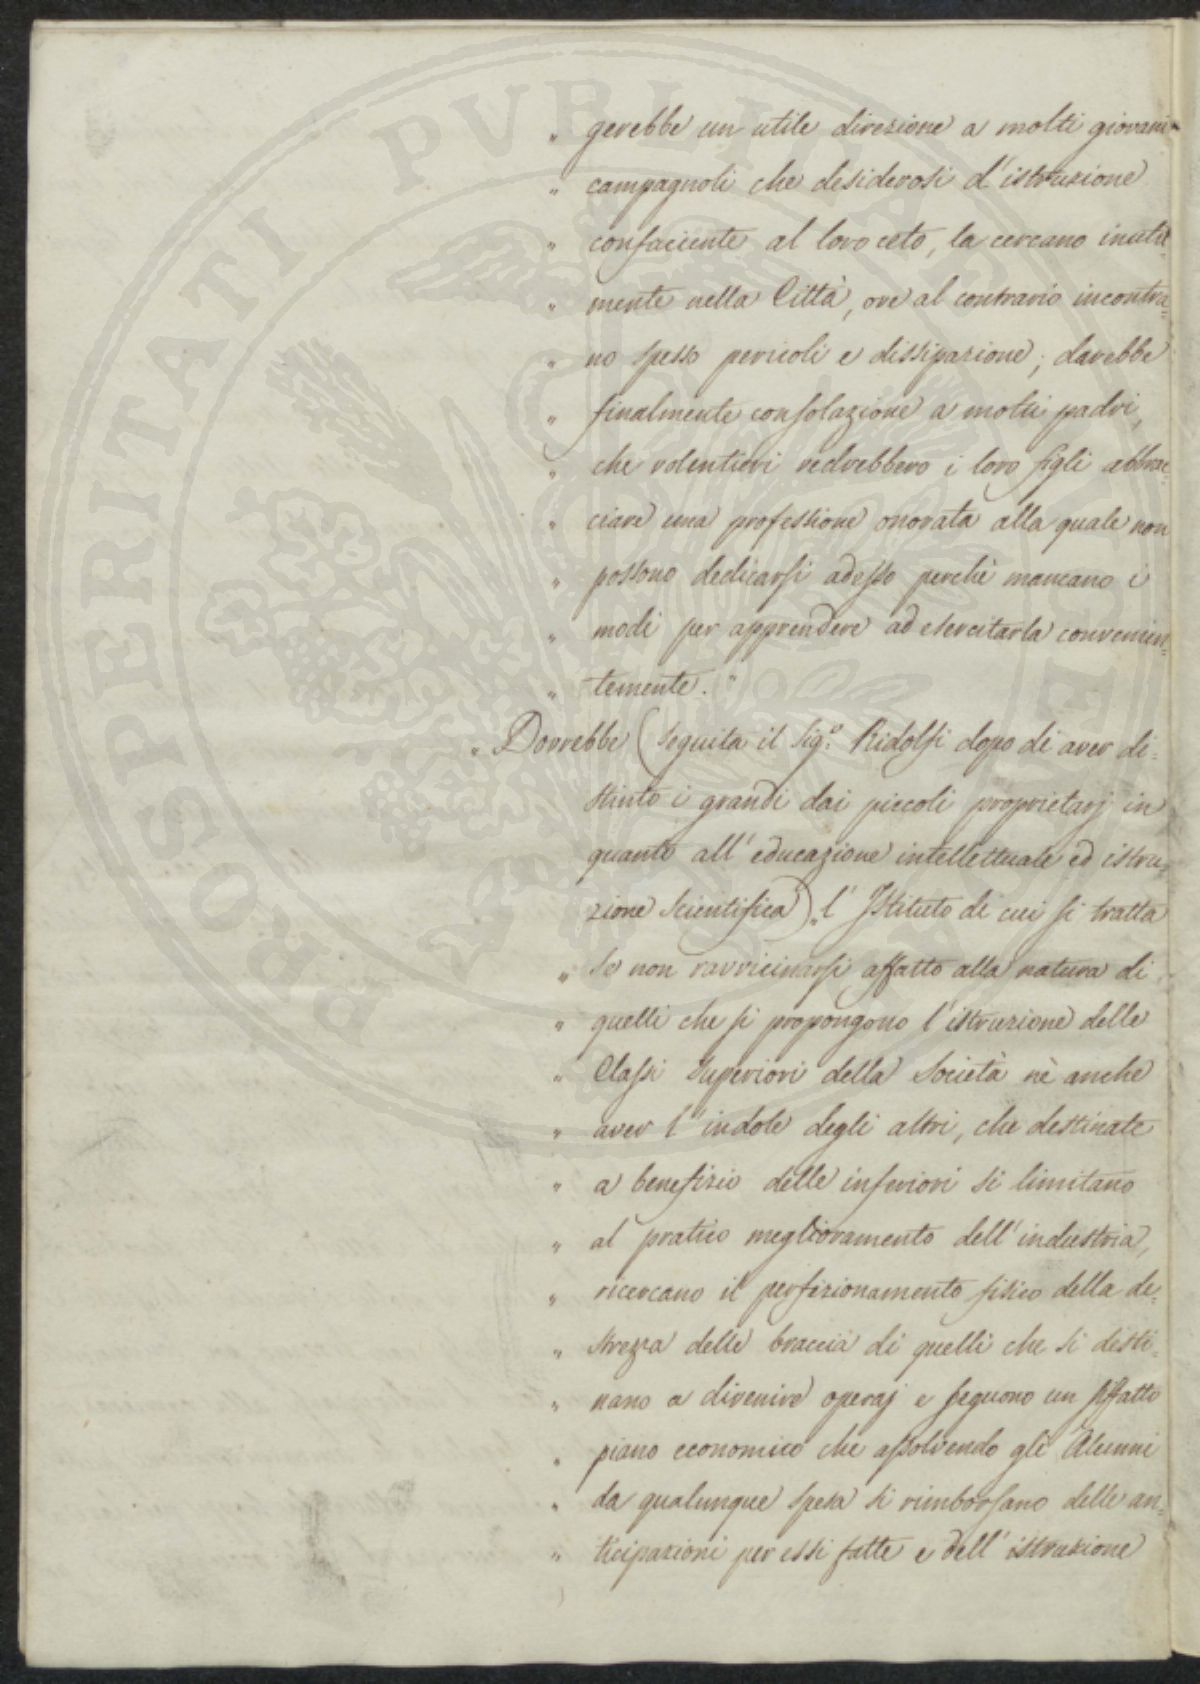 " gerebbe un utile direzione a molti giovani
" campagnoli che desiderosi d'istruzione
" confaciente al loro ceto, la cercano inutil-
" mente nella Città, ove al contrario incontra-
" no spesso pericoli e dissipazione; darebbe
" finalmente consolazione a molti padri,
" che volentieri vedrebbero i loro figli abbrac-
" ciare una professione onorata alla quale non
" possono dedicarsi adesso perchè mancano i
" modi per apprendere ad esercitarla convenien-
" temente."
" Dovrebbe (seguita il Sig.º Ridolfi dopo di aver di-
stinto i grandi dai piccoli proprietarj in
quanto all'educazione intellettuale ed istru-
zione scientifica) "l'Istituto di cui si tratta
" se non ravvicinarsi affatto alla natura di
" quelli che si propongono l'istruzione delle
" Classi Superiori della Società nè anche
" aver l'indole degli altri, che destinate
" a benefizio delle inferiori si limitano
" al pratico miglioramento dell'industria,
" ricercano il perfezionamento fisico della de-
" strezza delle braccia di quelli che si desti-
" nano a divenire operaj e seguono un siffatto
" piano economico che assolvendo gli Alunni
" da qualunque spesa si rimborsano delle an-
" ticipazioni per essi fatte e dell'istruzione
PROSPERITATI PVBLICAE